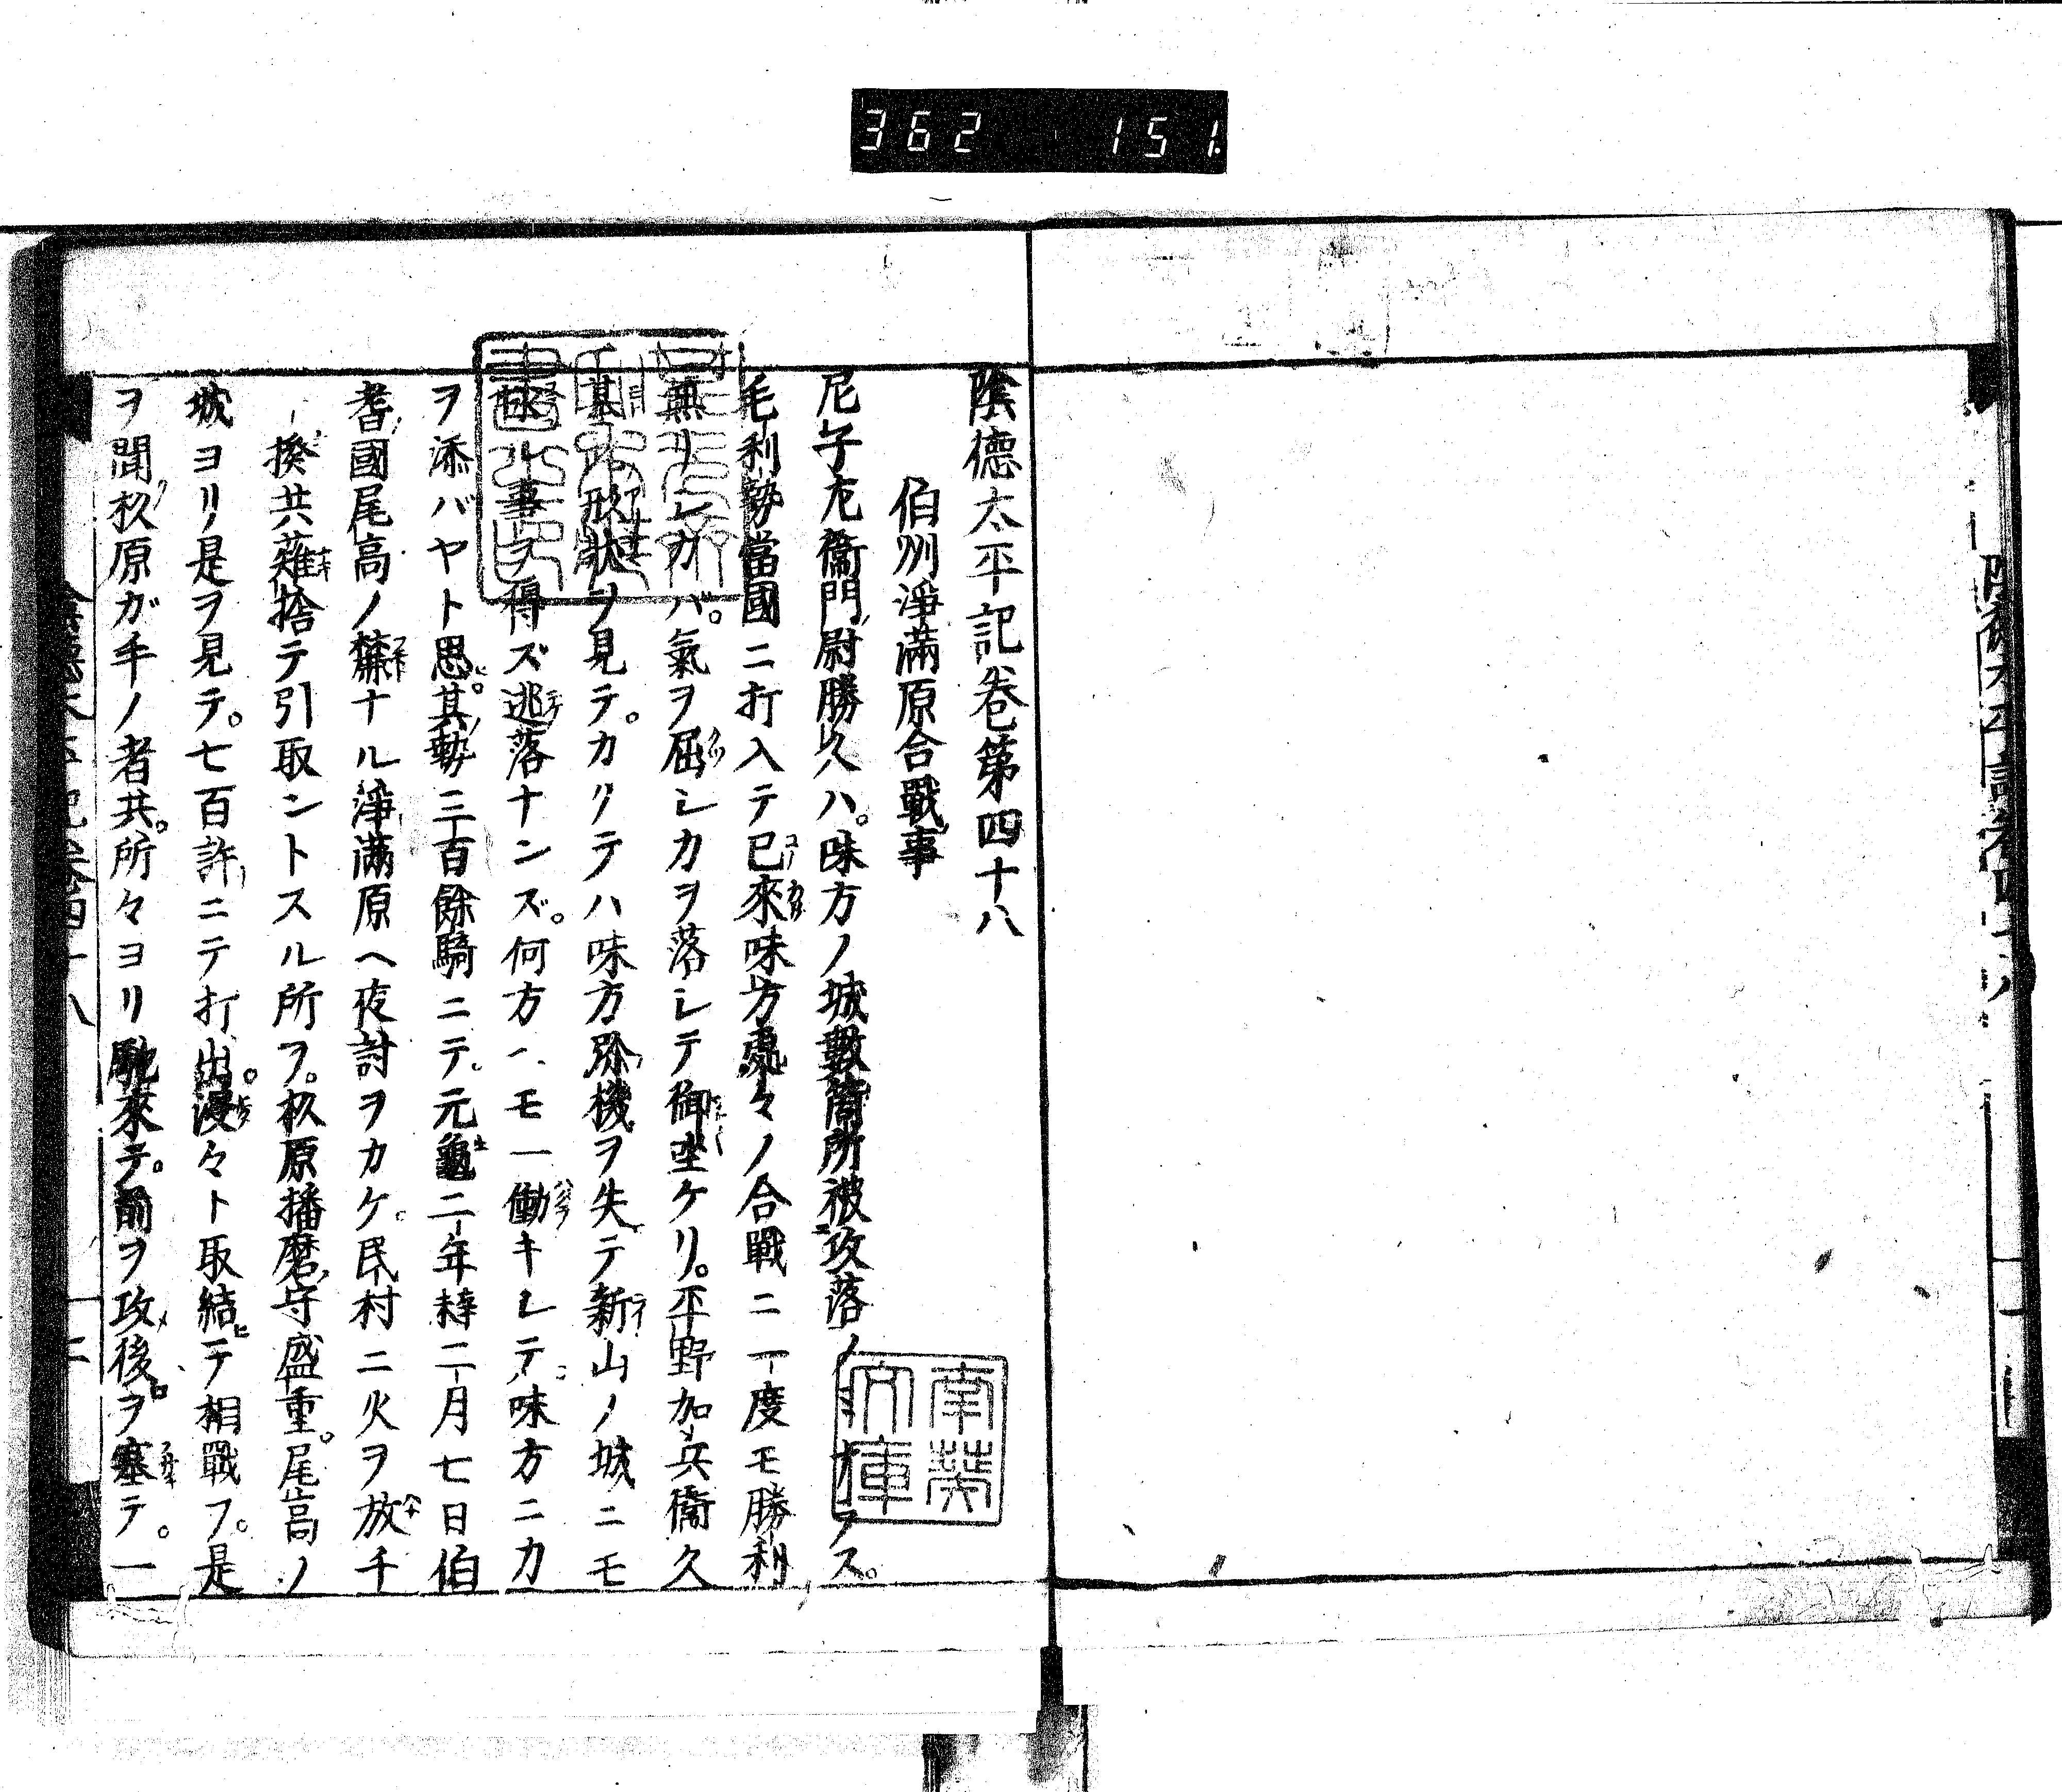 362 151
陰德太平記卷第四十八
伯州淨滿原合戰事
尼子左衞門尉勝久ハ。味方ノ城數箇所被攻落ノミナラス。
毛利勢當國ニ打入テ已來味方處々ノ合戰ニ一度モ勝利
無リシカバ。氣ヲ屈シカヲ落シテ御坐ケリ。平野加兵衞久
基此形狀ヲ見テ。カクテハ味方弥機ヲ失テ新山ノ城ニモ
ル事ヲ得ズ逃落ナンズ。何方ヘモ一働キシテ味方ニカ
ヲ添バヤト思。其勢三百餘騎ニテ。元龜二年二月七日伯
耆國尾高ノ麓ナル淨滿原ヘ夜討ヲカケ。民村ニ火ヲ放チ
一揆共薙捨テ引取ントスル所ヲ。杦原播磨守盛重。尾高ノ
城ヨリ是ヲ見テ。七百許ニテ打出。漫々ト取結テ相戰フ。是
ヲ聞杦原ガ手ノ者共。所々ヨリ馳來テ。前ヲ攻後ヲ塞テ。一